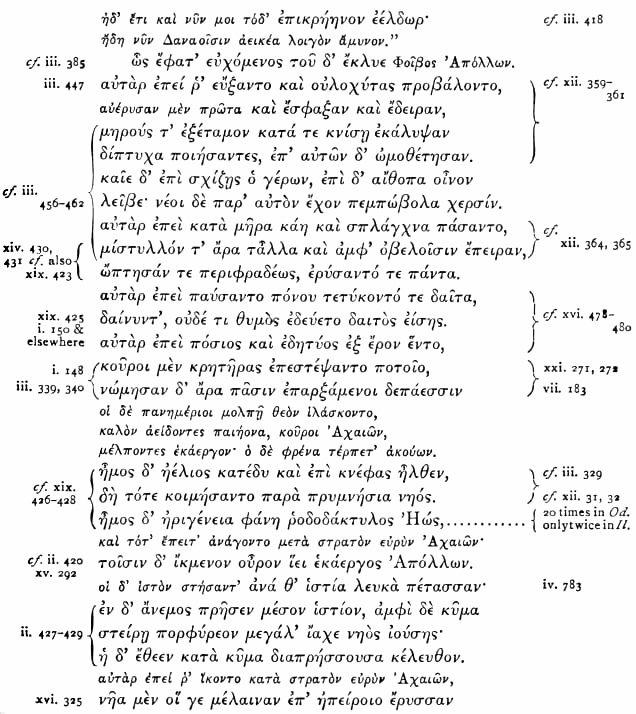 ἠδ' ἔτι καὶ νῦν μοι τόδ' ἐπικρήηνον ἐέλδωρ· cf. iii. 418
ἤδη νῦν Δαναοῖσιν ἀεικέα λοιγὸν ἄμυνον."
cf. iii. 385 ὣς ἔφατ' εὐχόμενος τοῦ δ' ἔκλυε Φοῖβος Ἀπόλλων.
iii. 447 αὐτὰρ ἐπεί ῥ' εὔξαντο καὶ οὐλοχύτας προβάλοντο, cf. xii. 359–
361
αὐέρυσαν μὲν πρῶτα καὶ ἔσφαξαν καὶ ἔδειραν,
μηρούς τ' ἐξέταμον κατά τε κνίσῃ ἐκάλυψαν
δίπτυχα ποιήσαντες, ἐπ' αὐτῶν δ' ὠμοθέτησαν.
καῖε δ' ἐπὶ σχίζῃς ὁ γέρων, ἐπὶ δ' αἴθοπα οἶνον
cf. iii.
456–462 λεῖβε· νέοι δὲ παρ' αὐτὸν ἔχον πεμπώβολα χερσίν.
αὐτὰρ ἐπεὶ κατὰ μῆρα κάη καὶ σπλάγχνα πάσαντο, cf.
xii. 364, 365
xiv. 430, μίστυλλόν τ' ἄρα τἆλλα καὶ ἀμφ' ὀβελοῖσιν ἔπειραν,
431 cf. also
xix. 423 ὤπτησάν τε περιφραδέως, ἐρύσαντό τε πάντα.
αὐτὰρ ἐπεὶ παύσαντο πόνου τετύκοντό τε δαῖτα,
xix. 425 δαίνυντ', οὐδέ τι θυμὸς ἐδεύετο δαιτὸς ἐίσης. cf. xvi. 478–
480
i. 150 &
elsewhere αὐτὰρ ἐπεὶ πόσιος καὶ ἐδητύος ἐξ ἔρον ἕντο,
i. 148 κοῦροι μὲν κρητῆρας ἐπεστέψαντο ποτοῖο, xxi. 271, 272
iii. 339, 340 νώμησαν δ' ἄρα πᾶσιν ἐπαρξάμενοι δεπάεσσιν vii. 183
οἱ δὲ πανημέριοι μολπῇ θεὸν ἱλάσκοντο,
καλὸν ἀείδοντες παιήονα, κοῦροι Ἀχαιῶν,
μέλποντες ἑκάεργον· ὁ δὲ φρένα τέρπετ' ἀκούων.
ἦμος δ' ἠέλιος κατέδυ καὶ ἐπὶ κνέφας ἦλθεν, cf. iii. 329
cf. xix.
426–428 δὴ τότε κοιμήσαντο παρὰ πρυμνήσια νηός. cf. xii. 31, 32
ἦμος δ' ἠριγένεια φάνη ῥοδοδάκτυλος Ἠώς,............ 20 times in Od.
only twice in Il.
καὶ τότ' ἔπειτ' ἀνάγοντο μετὰ στρατὸν εὐρὺν Ἀχαιῶν·
cf. ii. 420
xv. 292 τοῖσιν δ' ἴκμενον οὖρον ἵει ἑκάεργος Ἀπόλλων.
οἱ δ' ἱστὸν στήσαντ' ἀνά θ' ἱστία λευκὰ πέτασσαν· iv. 783
ἐν δ' ἄνεμος πρῆσεν μέσον ἱστίον, ἀμφὶ δὲ κῦμα
ii. 427–429 στείρῃ πορφύρεον μεγάλ' ἴαχε νηὸς ἰούσης·
ἡ δ' ἔθεεν κατὰ κῦμα διαπρήσσουσα κέλευθον.
αὐτὰρ ἐπεί ῥ' ἵκοντο κατὰ στρατὸν εὐρὺν Ἀχαιῶν,
xvi. 325 νῆα μὲν οἵ γε μέλαιναν ἐπ' ἠπείροιο ἔρυσσαν